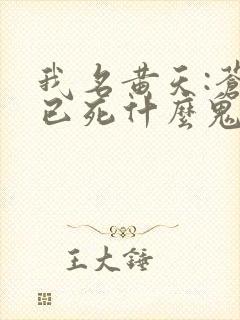 我名黄天:蒼
已死什麼鬼
王大錘